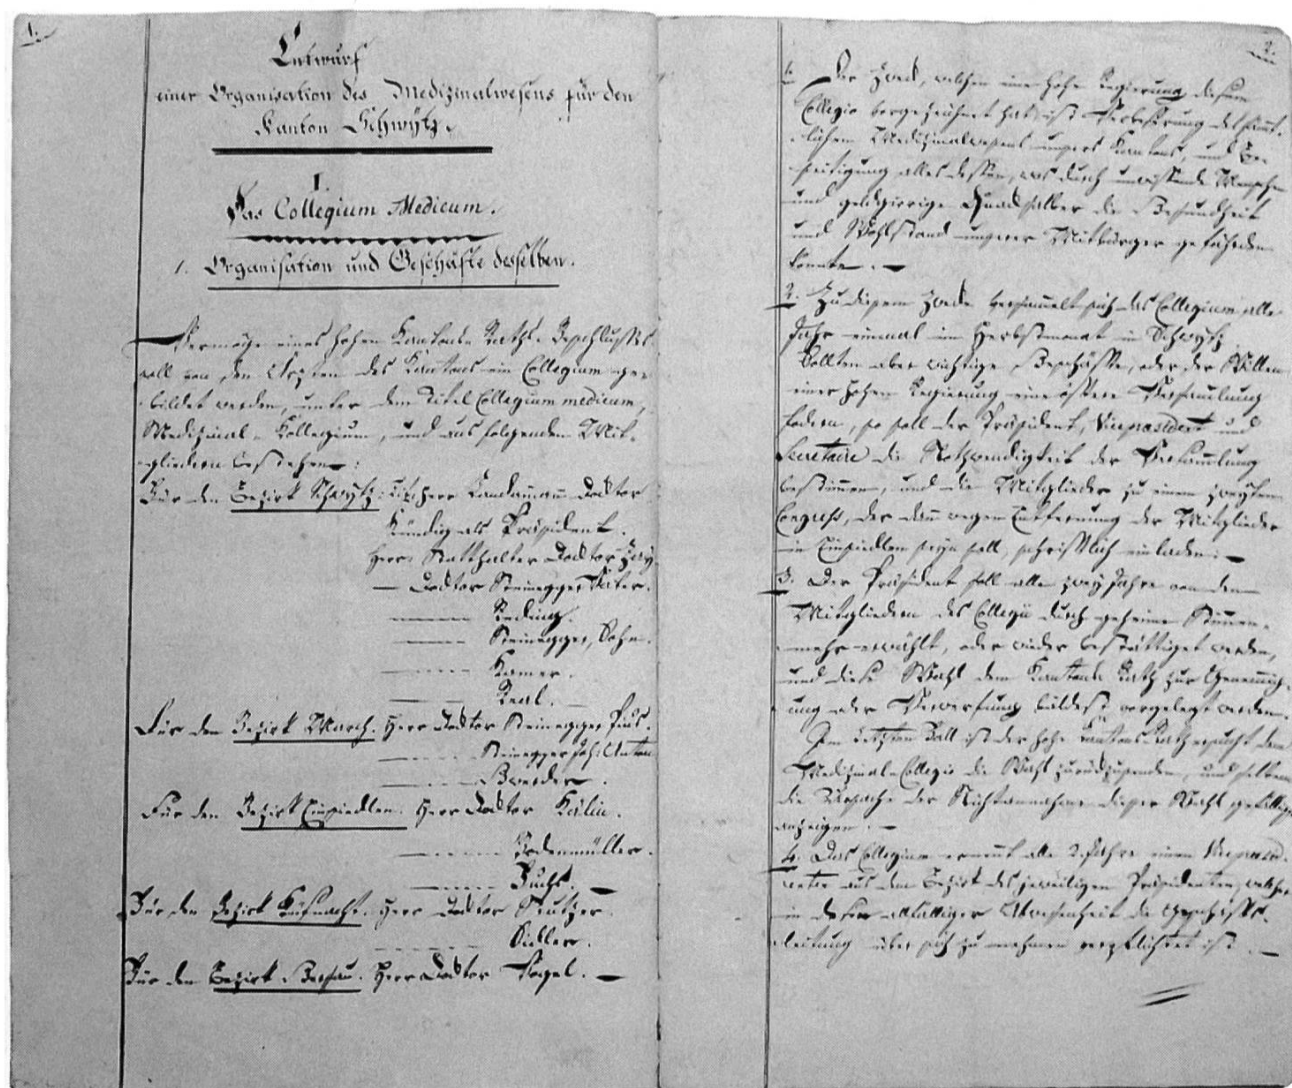 1.
Entwurf
einer Organisation des Medizinalwesens für den
Kanton Schwÿtz.
I.
Das Collegium Medicum.
1. Organisation und Geschäfte desselben.
Vermöge eines hohen Kantons Raths Beschlusses
soll von den Ärzten des Kantons ein Collegium ge-
bildet werden, unter dem Titel Collegium medicum,
Medizinal-Kollegium, und aus folgenden Mit-
gliedern bestehen:
Für den Bezirk Schwÿtz: Herr Landammann Doktor
Kündig als Präsident.
Herr Statthalter Doktor Zay.
— Doktor Steinegger, Vater.
— Reding.
— Steinegger, Sohn.
— Kamer.
— Real.
Für den Bezirk March. Herr Doktor Steinegger Pius.
— Steinegger Joh: Anton
Für den Bezirk Einsiedlen. Herr Doktor Kälin.
— Bodenmüller.
— Fuchs.
Für den Bezirk Küßnacht. Herr Doktor Stutzer.
— Sidler.
Für den Bezirk Gersau. Herr Doktor
2.
1. Der Zweck, welchen eine hohe Regierung diesem
Collegio vorgezeichnet hat, ist Verbesserung des sämt-
lichen Medizinalwesens unsers Kantons, und Be-
seitigung alles dessen, was durch unwissende Menschen
und geldgierige Quacksalber der Gesundheit
und Wohlstand unserer Mitbürger geschaden
könnte.
2. Zu diesem Zwecke versammelt sich das Collegium alle
Jahr einmal im Herbstmonat in Schwÿtz.
Sollten aber wichtige Geschäfte, oder der Willen
einer hohen Regierung eine öftere Versammlung
fodern, so soll der Präsident, Vicepräsident und
Secretaire die Nothwendigkeit der Versammlung
bestimmen, und die Mitglieder zu einem zweÿten
Congreß, der dann wegen Entfernung der Mitglieder
in Einsiedlen seÿn soll, schriftlich einladen.
3. Der Präsident soll alle zweÿ Jahre von den
Mitgliedern des Collegii durch geheimes Stimmen-
mehr erwählt, oder wieder bestättiget werden,
und diese Wahl dem Kantons Rath zur Genehmig-
ung oder Verwerfung vorgelegt werden.
Im letzten Fall ist der hohe Kantons-Rath ersucht dem
Medizinal-Collegio die Wahl zurückzusenden, und selbem
die Ursache der Nichtannahme dieser Wahl gefälligst
anzeigen.
4. Das Collegium ernennt alle 2 Jahre einen Vicepräsi-
denten aus dem Bezirk des jeweiligen Präsidenten, welcher
in dessen allfälliger Abwesenheit die Geschäfts-
leitung über sich zu nehmen verpflichtet ist.